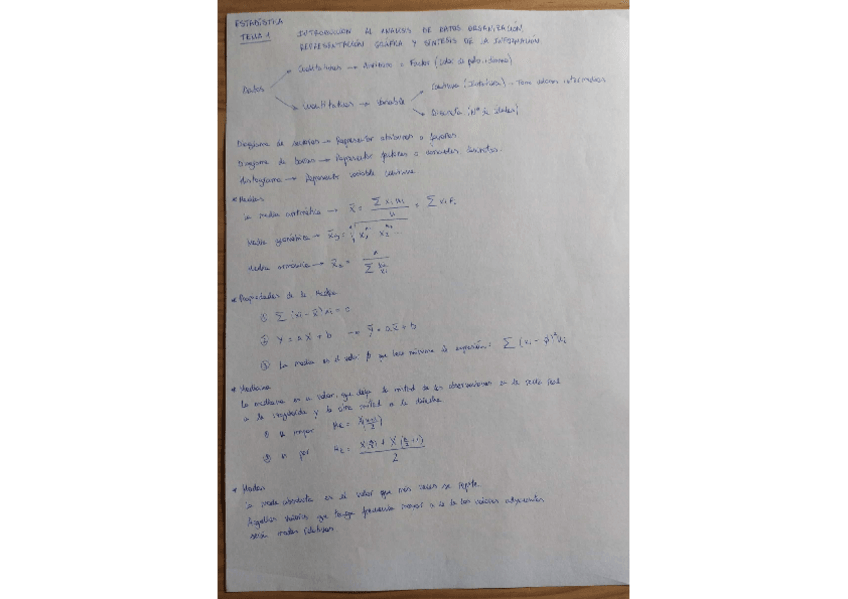 ESTADÍSTICA
TEMA 1 INTRODUCCIÓN AL ANÁLISIS DE DATOS. ORGANIZACIÓN,
REPRESENTACIÓN GRÁFICA Y SÍNTESIS DE LA INFORMACIÓN.
Datos
Cualitativos → Atributo o Factor (color de pelo, idioma)
Cuantitativos → Variable
Continua → Toma valores intermedios
Discreta (Nº de
Diagrama de sectores → Representar atributos o factores
Diagrama de barras → Representar factores o variables discretas.
Histograma → Representar variable continua
* Medias
La media aritmética → x̄ = Σ xi ni / n = Σ xi Fi
Media geométrica →
Media armónica →
* Propiedades de la Media
① Σ (xi - x̄) ni = 0
② Y = aX + b → ȳ = a x̄ + b
③ La media es el valor β que hace mínima la expresión: Σ (xi - β)² ni
* Mediana
La mediana es un valor que deja la mitad de las observaciones de la serie
a la izquierda y la otra mitad a la derecha
① n impar Me = X((n+1)/2)
② n par Me = X(n/2) + X(n/2 + 1) / 2
* Modas
La moda absoluta es el valor que más veces se repite.
Aquellos valores que tengan frecuencia mayor a la de los valores adyacentes
serán modas relativas.